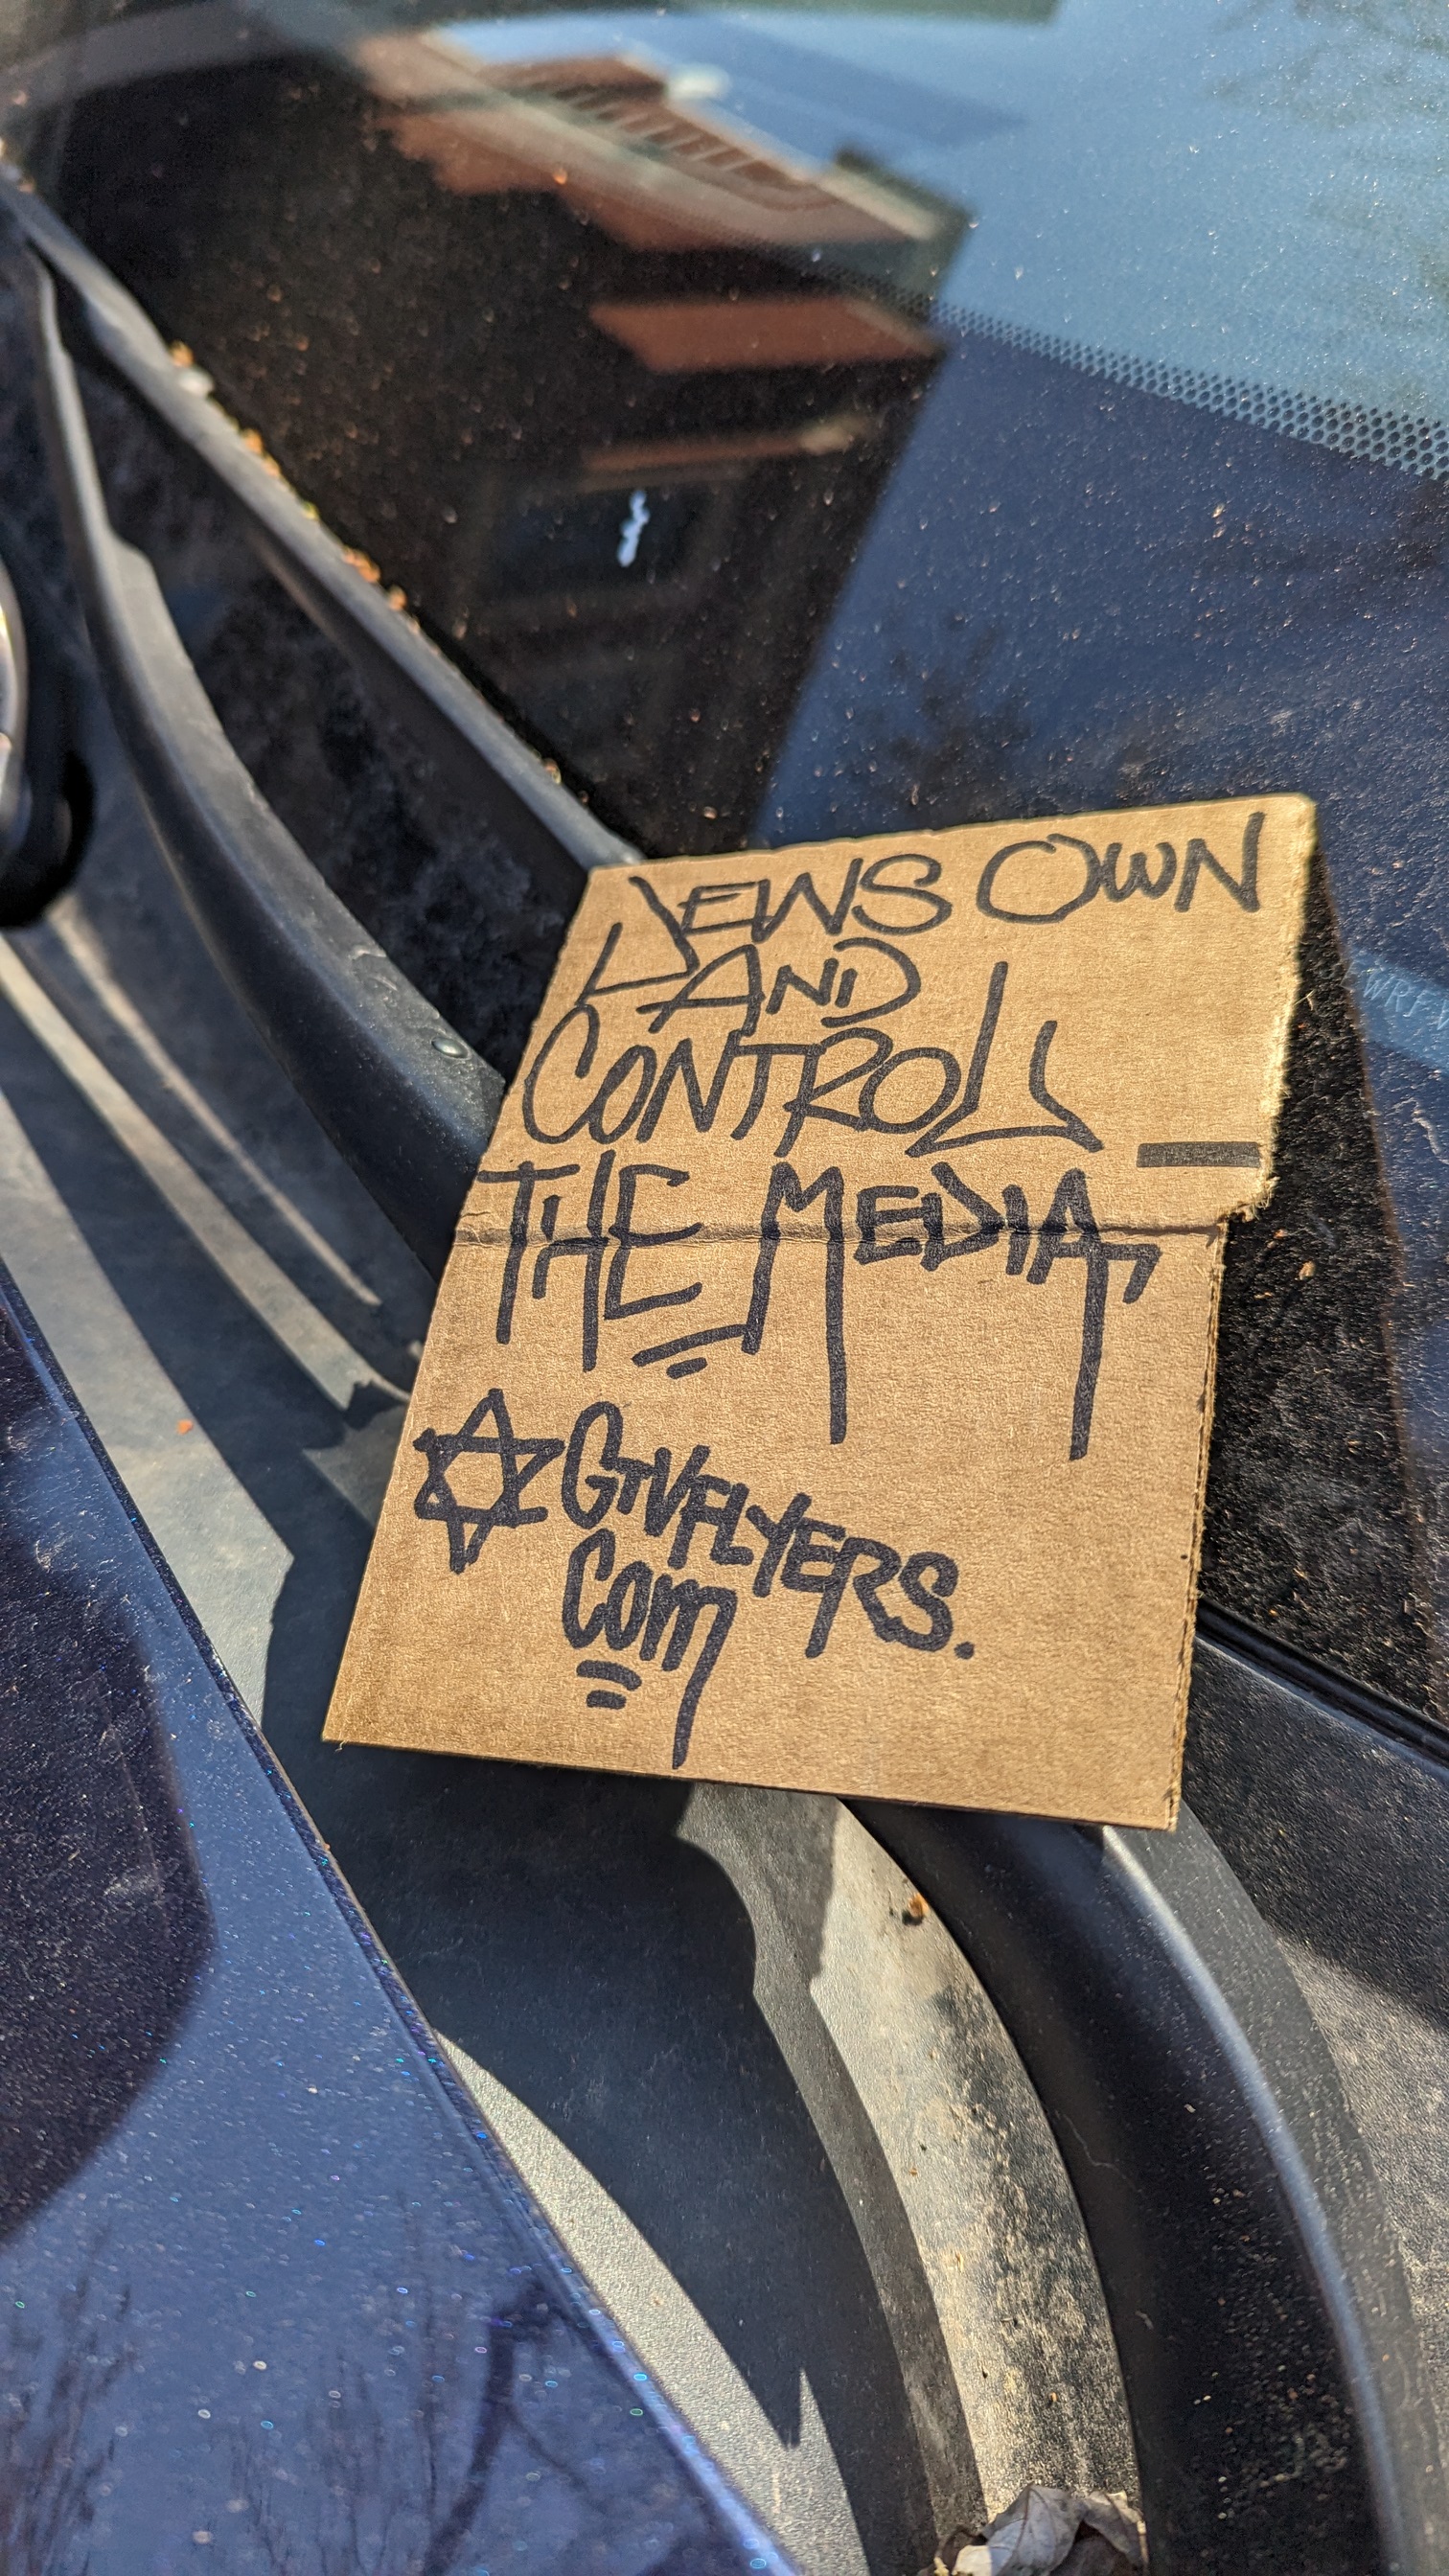 JEWS OWN
AND
CONTROL
THE MEDIA
GTVFLYERS.
COM